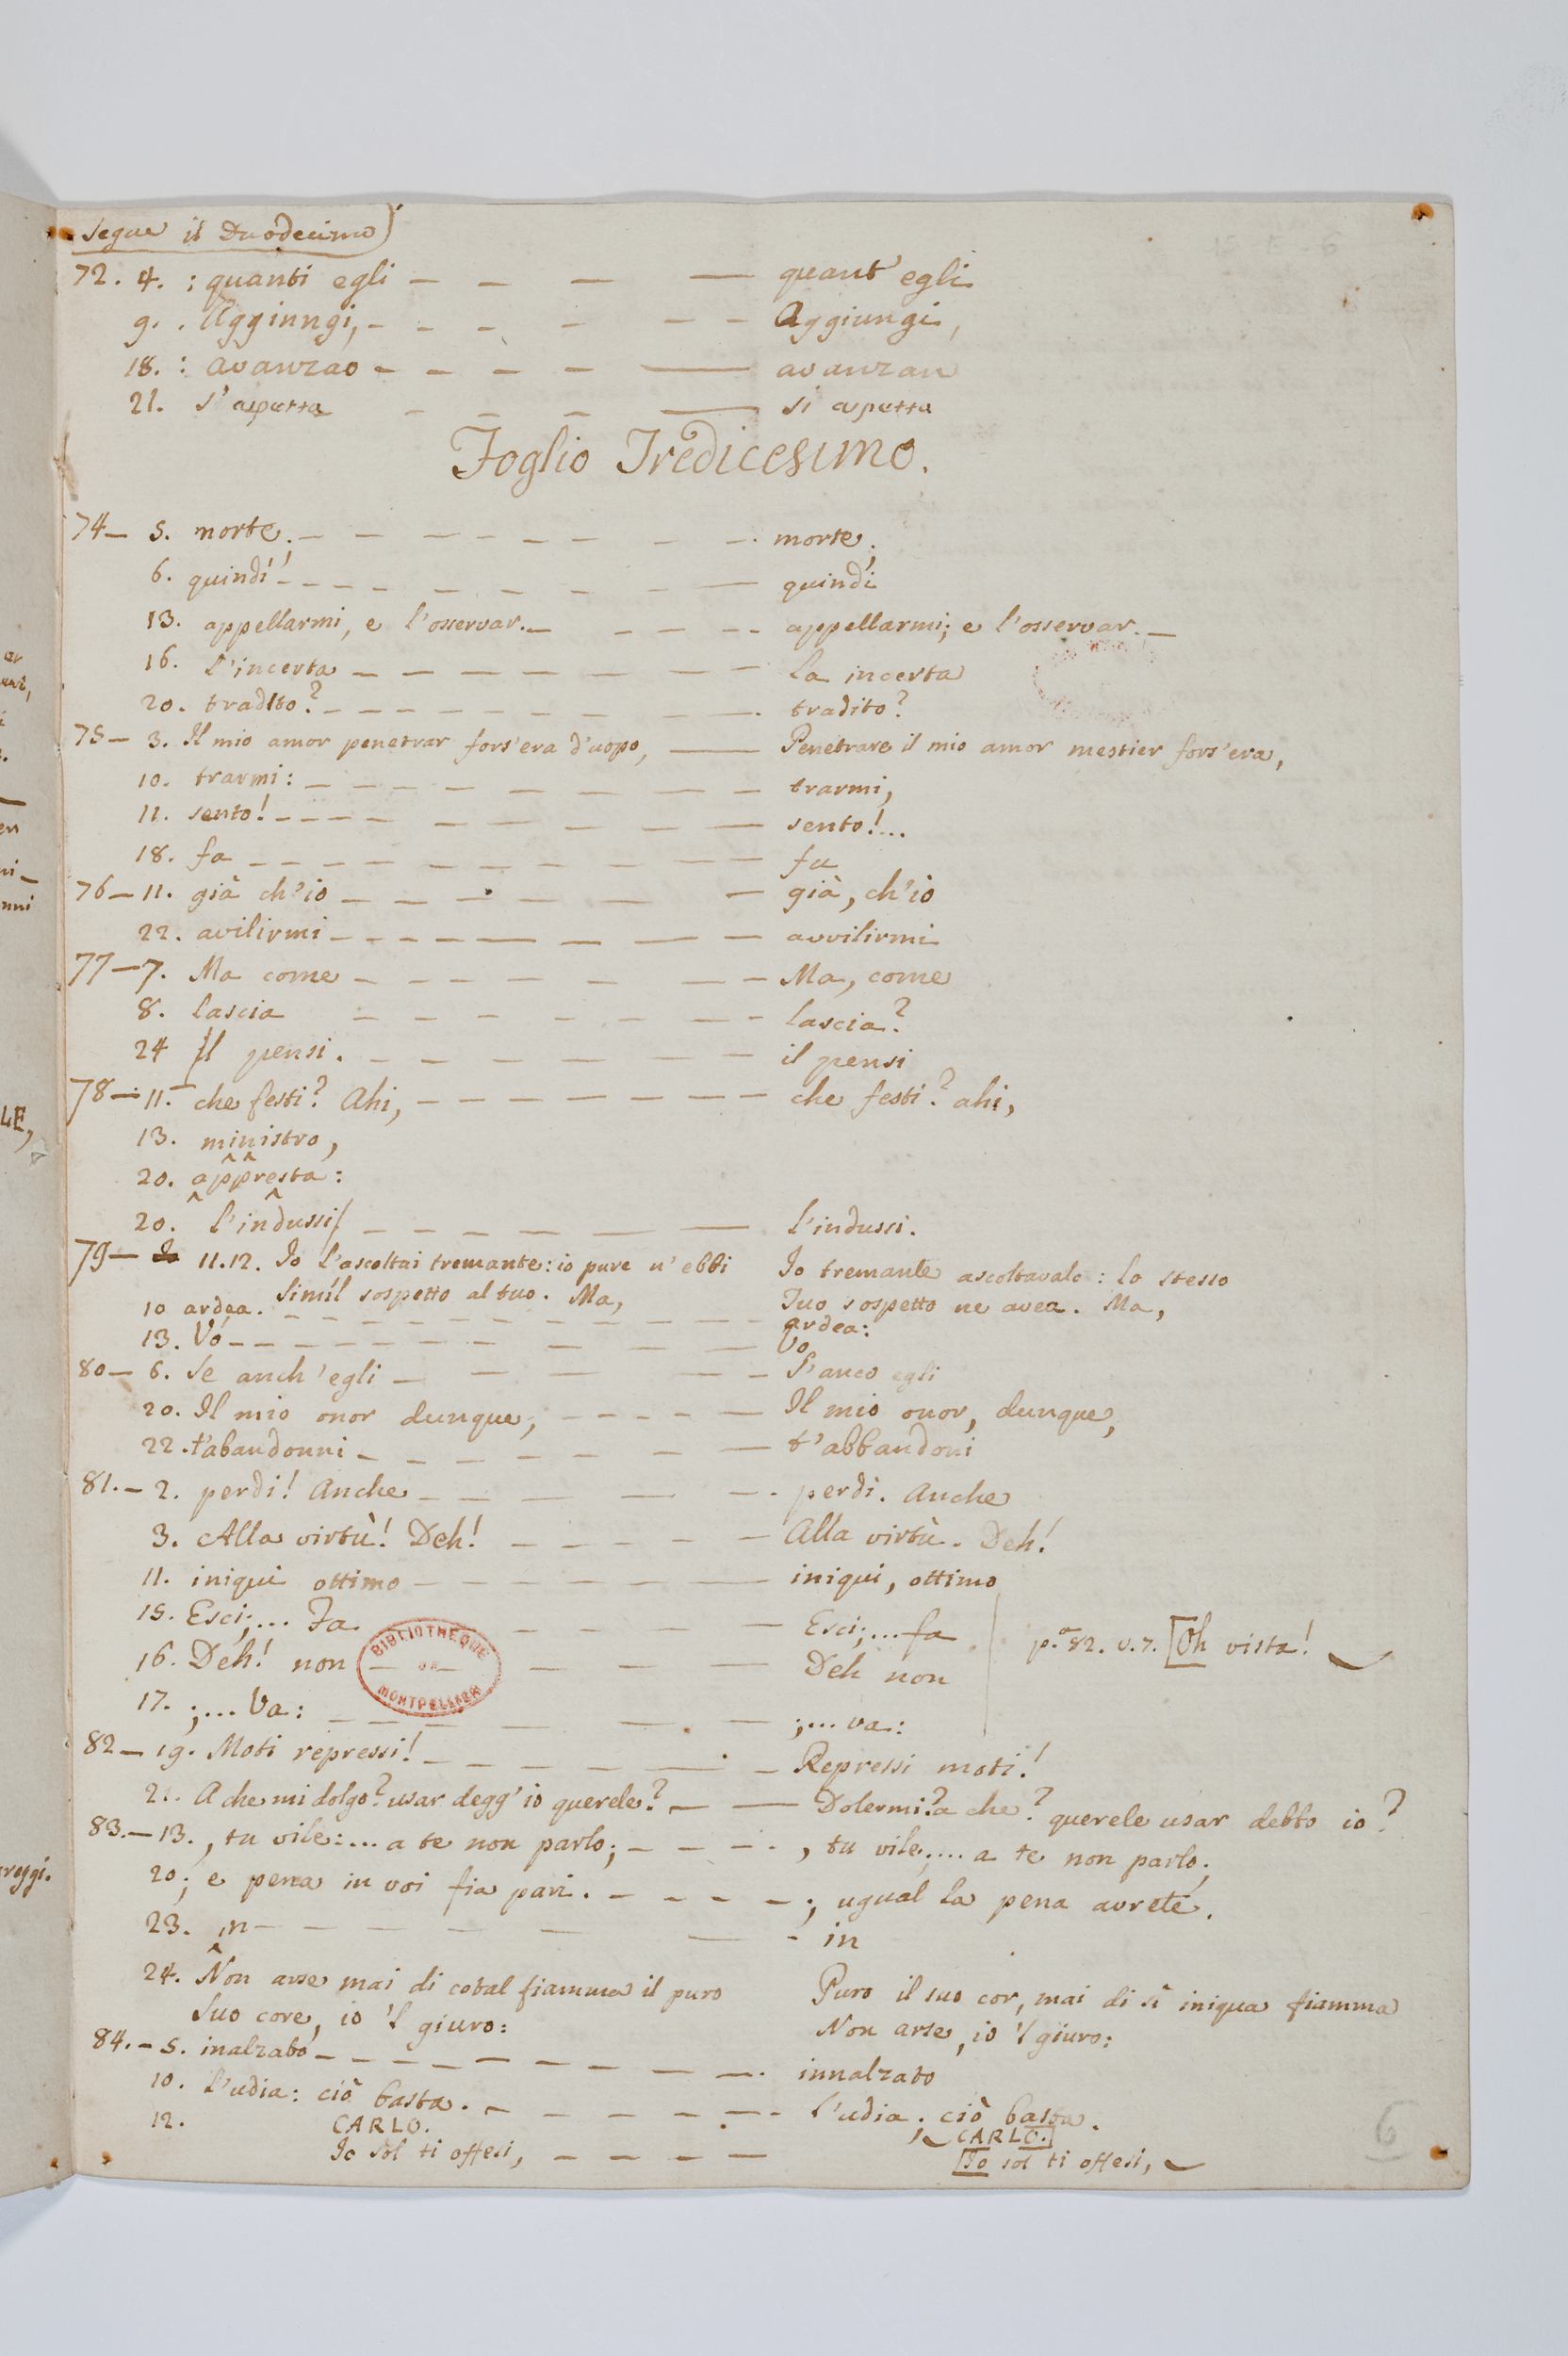 segue il Duodecimo)
72. 4. : quanti egli — — — — quant' egli
9. . Agginngi, - - - - - - Aggiungi,
18. : avanzao - - - - — avanzan
21. s'aspetta - - - — si aspetta
Foglio Tredicesimo.
74— 5. morte. - - - - - - - - morte;
6. quindi! - - - - - - - - quindi
13. appellarmi, e l'osservar. — - - - - appellarmi; e l'osservar. —
16. l'incerta - - - - - - - la incerta
20. tradIto? - - - - - - - - tradito?
75— 3. Il mio amor penetrar fors'era d'uopo, — Penetrare il mio amor mestier fors'era,
10. trarmi: - - - - - - - - trarmi,
11. sento! - - - - - - - - - sento!...
18. fa - - - - - - - - - fu
76—11. già ch'io - - - - - - già, ch'io
22. avilirmi - - - - - - - - avvilirmi
77—7. Ma come - - - - - - - Ma, come
8. lascia - - - - - - - - lascia?
24 Il pensi. - - - - - - - il pensi
78—11. che festi? Ahi, - - - - - - - - che festi? ahi,
13. ministro,
20. appresta:
20. l'indussi/ - - - - - — l'indussi.
79— 11.12. Io l'ascoltai tremante: io pure n'ebbi Io tremante ascoltavalo: lo stesso
Simíl sospetto al tuo. Ma, Tuo sospetto ne avea. Ma,
10 ardea. - - - - - - - - - ardea:
13. Vó - - - - - - - - - Vo
80— 6. Se anch'egli - - - - - S'anco egli
20. Il mio onor dunque, - - - - — Il mio onor, dunque,
22. t'abandonni - - - - - - - t'abbandoni
81.— 2. perdi! Anche - - - - - - perdi. Anche
3. Alla virtù! Deh! - - - - - - Alla virtù. Deh!
11. iniqui ottimo - - - - - — iniqui, ottimo
15. Esci;... Fa - - - - - Esci;... fa
p.ª 82. v. 7. [Oh vista!
16. Deh! non - - - - - - Deh non
BIBLIOTHEQUE DE MONTPELLIER
17. ;... Va: - - - - - - ;... va:
82— 19. Moti repressi! - - - - - - - Repressi moti!
21. A che mi dolgo? usar degg'io querele? - — Dolermi? a che? querele usar debbo io?
83.—13. , tu vile:... a te non parlo; - - - - , tu vile;... a te non parlo;
20; e pena in voi fia pari. - - - - - ; ugual la pena avrete.
23. ın - - - - - - - in
24. Non arse mai di cotal fiamma il puro Puro il suo cor, mai di sì iniqua fiamma
Suo core, io 'l giuro: Non arse, io 'l giuro:
84.—5. inalzato - - - - - - - - - innalzato
10. l'udia: ciò basta. - - - - - - l'udia. ciò basta.
12. CARLO. CARLO.]
Io sol ti offesi, - - - - - [Io sol ti offesi,
6